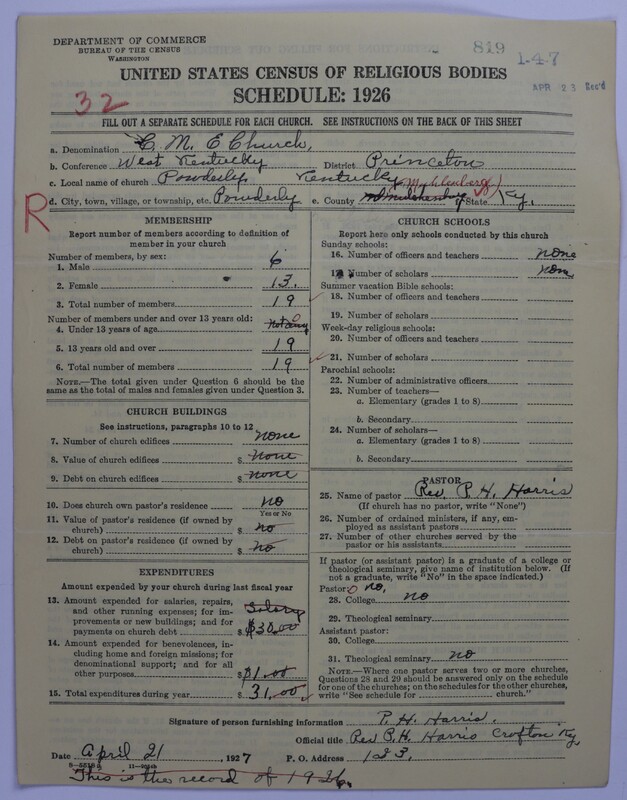 DEPARTMENT OF COMMERCE
BUREAU OF THE CENSUS
WASHINGTON
819
1-4-7
APR 23 Rec'd
UNITED STATES CENSUS OF RELIGIOUS BODIES
SCHEDULE: 1926
32
FILL OUT A SEPARATE SCHEDULE FOR EACH CHURCH. SEE INSTRUCTIONS ON THE BACK OF THIS SHEET
a. Denomination C. M. E Church,
b. Conference West Kentucky District Princeton
c. Local name of church Powderly Kentucky
R
d. City, town, village, or township, etc. Powderly e. County Muhlenberg State Ky.
MEMBERSHIP
Report number of members according to definition of
member in your church
Number of members, by sex:
1. Male 6
2. Female 13.
3. Total number of members 19
Number of members under and over 13 years old:
4. Under 13 years of age not any
5. 13 years old and over 19
6. Total number of members 19
NOTE.—The total given under Question 6 should be the
same as the total of males and females given under Question 3.
CHURCH BUILDINGS
See instructions, paragraphs 10 to 12
7. Number of church edifices none
8. Value of church edifices $ none
9. Debt on church edifices $ none
10. Does church own pastor's residence no
Yes or No
11. Value of pastor's residence (if owned by
church) $ no
12. Debt on pastor's residence (if owned by
church) $ no
EXPENDITURES
Amount expended by your church during last fiscal year
13. Amount expended for salaries, repairs,
and other running expenses; for im-
provements or new buildings; and for
payments on church debt Salary $ $30.00
14. Amount expended for benevolences,
including home and foreign missions; for
denominational support; and for all
other purposes $ $1.00
15. Total expenditures during year $ 31.00
CHURCH SCHOOLS
Report here only schools conducted by this church
Sunday schools:
16. Number of officers and teachers none
17. Number of scholars none
Summer vacation Bible schools:
18. Number of officers and teachers
19. Number of scholars
Week-day religious schools:
20. Number of officers and teachers
21. Number of scholars
Parochial schools:
22. Number of administrative officers
23. Number of teachers—
a. Elementary (grades 1 to 8)
b. Secondary
24. Number of scholars—
a. Elementary (grades 1 to 8)
b. Secondary
PASTOR
25. Name of pastor Rev. P. H. Harris
(If church has no pastor, write "None")
26. Number of ordained ministers, if any, em-
ployed as assistant pastors
27. Number of other churches served by the
pastor or his assistants
If pastor (or assistant pastor) is a graduate of a college or
theological seminary, give name of institution below. (If
not a graduate, write "No" in the space indicated.)
Pastor: no,
28. College no
29. Theological seminary
Assistant pastor:
30. College
31. Theological seminary no
NOTE.—Where one pastor serves two or more churches,
Questions 28 and 29 should be answered only on the schedule
for one of the churches; on the schedules for the other churches,
write "See schedule for church."
Signature of person furnishing information P. H. Harris.
Official title Rev P. H. Harris Crofton Ky.
Date April 21 1927 P. O. Address 123.
This is the record of 1926.